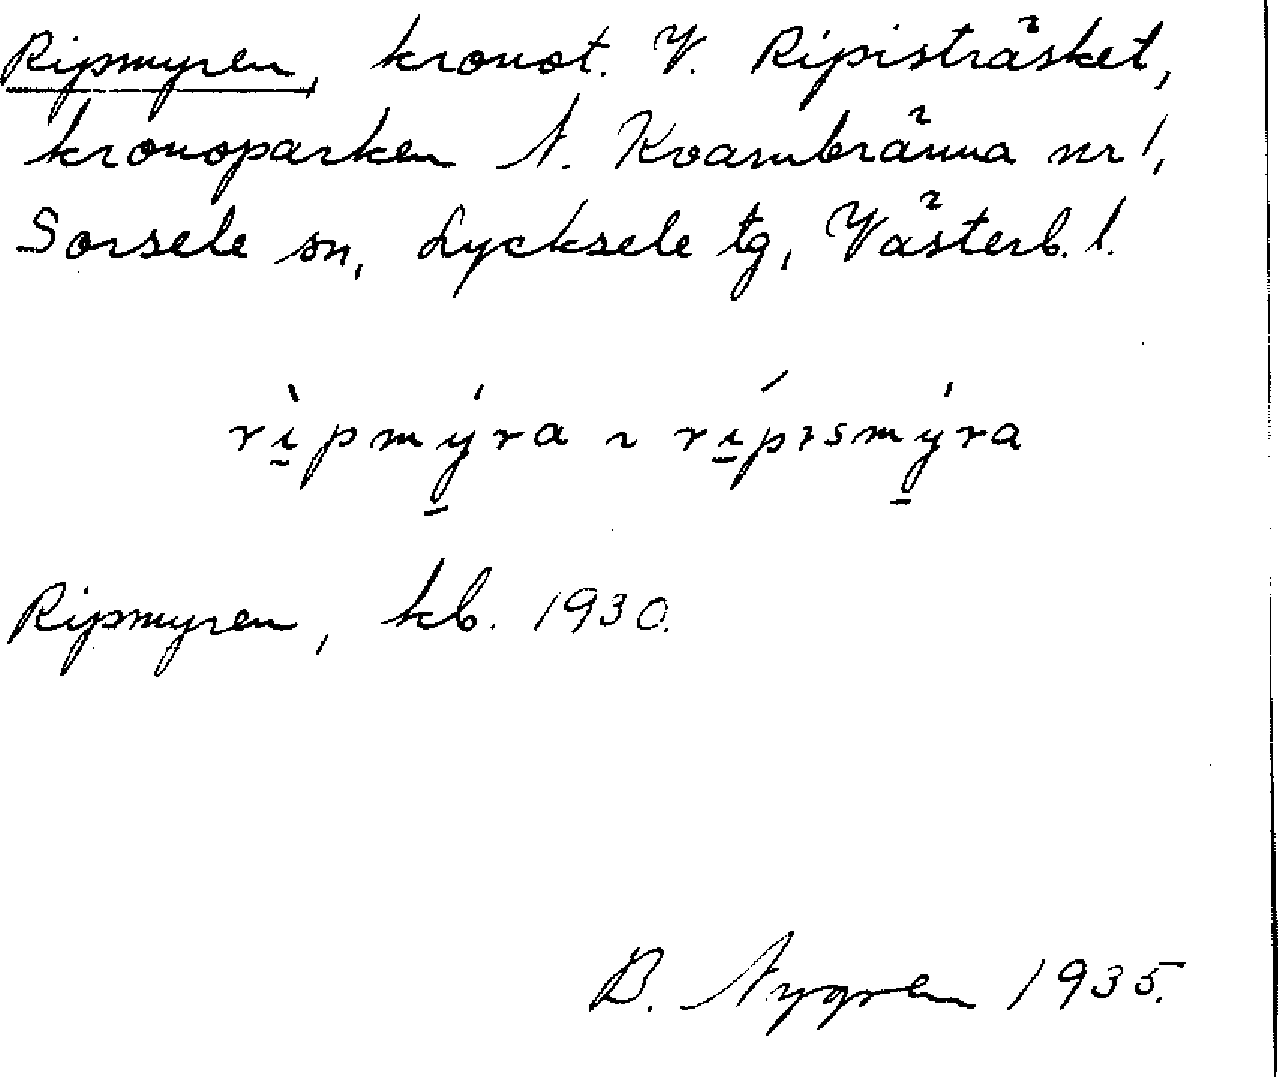 Ripmyren, kronot. V. Ripisträsket,
kronoparken N. Kvarnbränna nr 1,
Sorsele sn, Lycksele tg, Västerb. l.
rìpmýra ~ rípɪsmýra
Ripmyren, kb. 1930.
B. Nygren 1935.